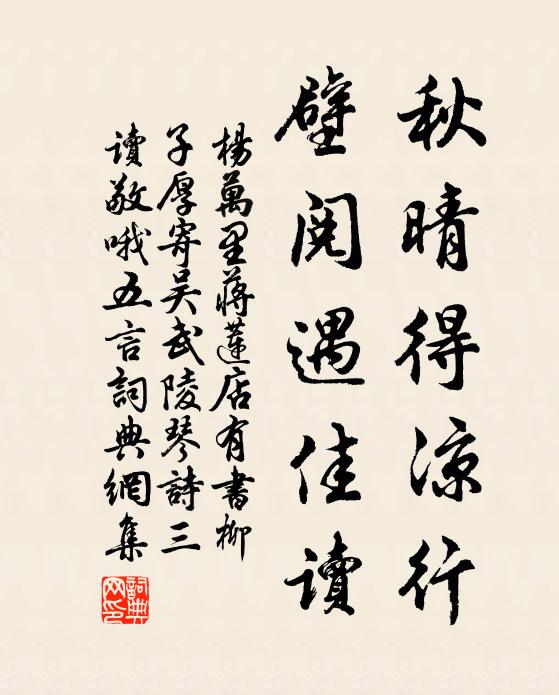 秋晴得涼行
壁閱遇佳讀
楊萬里蔣蓮店有書柳
子厚寄吴武陵琴詩三
讀敬哦五言詞典網集
詞典網印